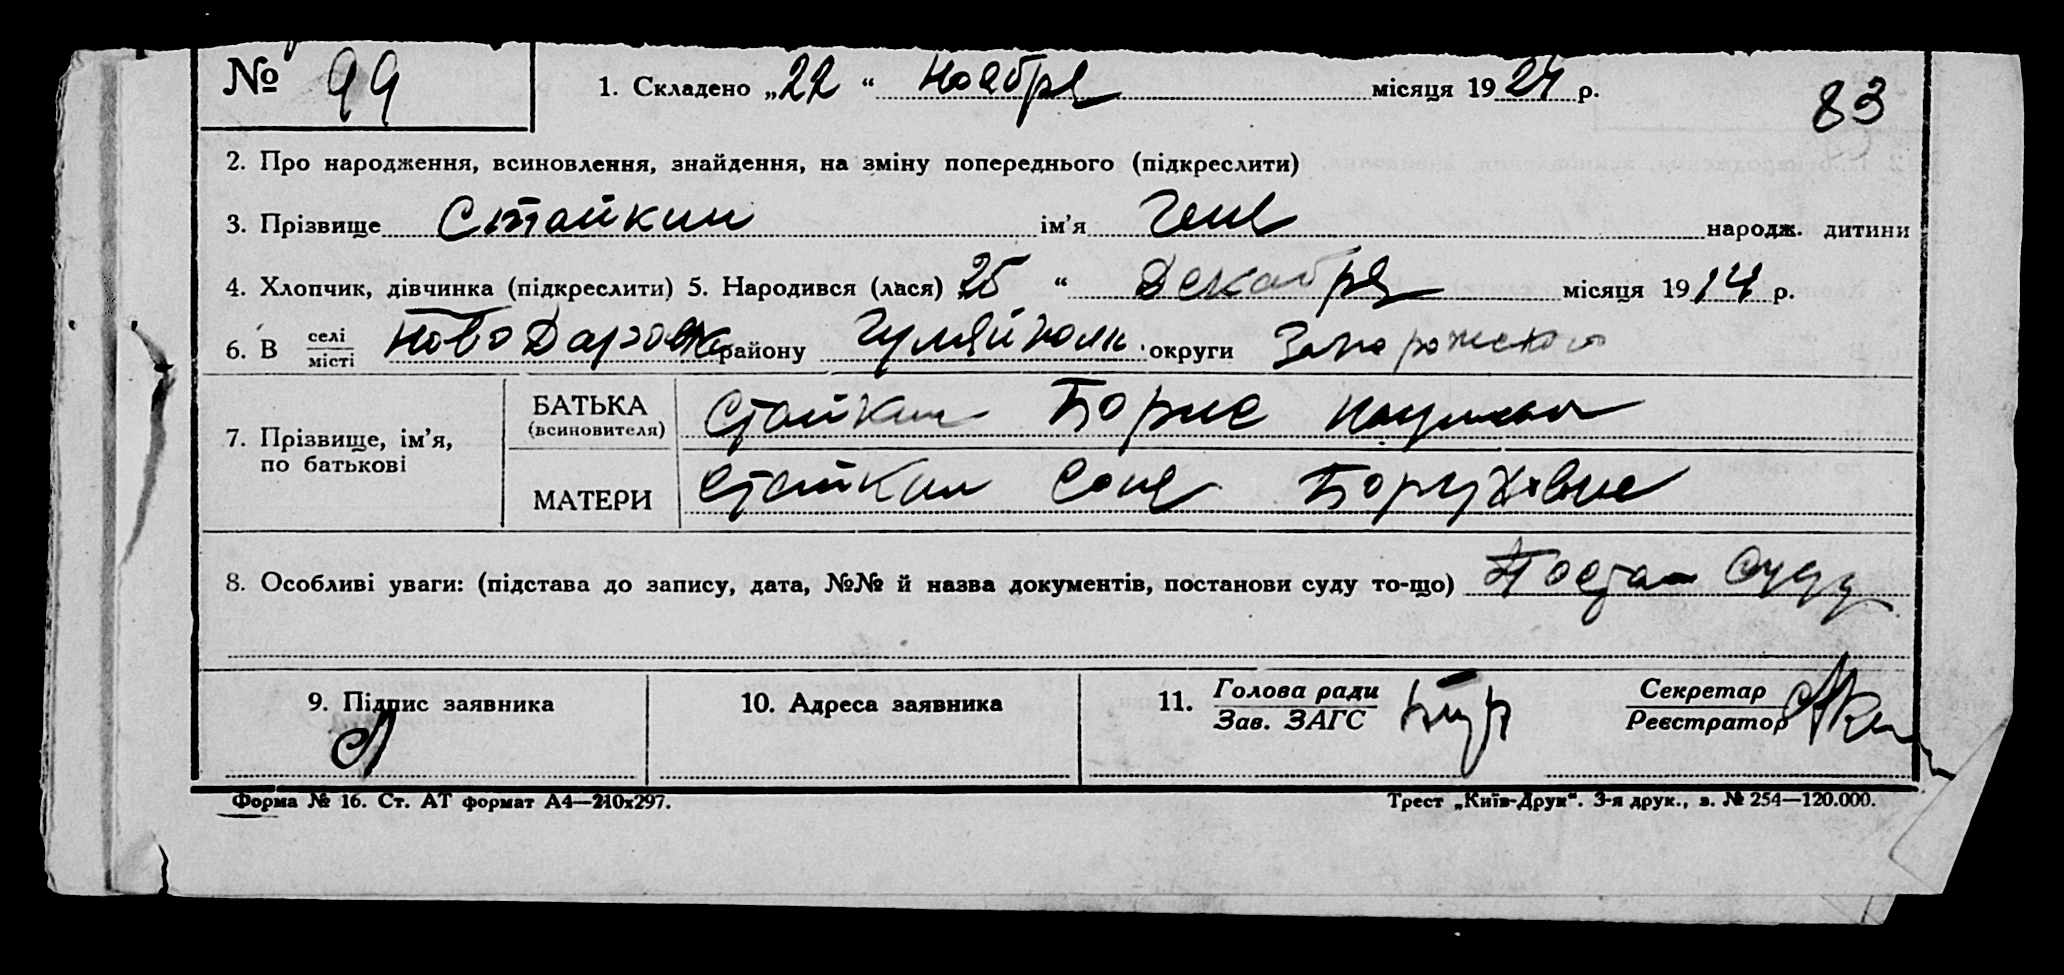 № 99 1. Складено „22“ Ноября місяця 1924 р. 83
2. Про народження, всиновлення, знайдення, на зміну попереднього (підкреслити)
3. Прізвище Стайкин ім’я народж. дитини
4. Хлопчик, дівчинка (підкреслити) 5. Народився (лася) 25 “ Декабря місяця 1914 р.
6. В селі/місті району Гуляйполь округи Запорожского
7. Прізвище, ім’я, по батькові
БАТЬКА (всиновителя) Стайкин Борис
МАТЕРИ Стайкин Соня Боруховна
8. Особливі уваги: (підстава до запису, дата, №№ й назва документів, постанови суду то-що) Постан суду
9. Підпис заявника
10. Адреса заявника
11. Голова ради/Зав. ЗАГС
Секретар/Реєстратор
Форма № 16. Ст. АТ формат А4—210х297.
Трест „Київ-Друк“. 3-я друк., з. № 254—120.000.